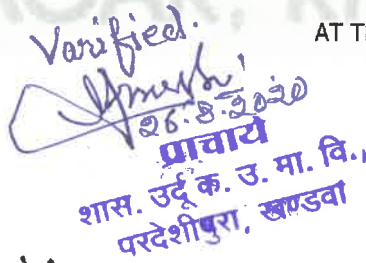 AT T
Varified.
26.8.2020
प्राचार्य
शास. उर्दू क. उ. मा. वि.,
परदेशीपुरा, खण्डवा